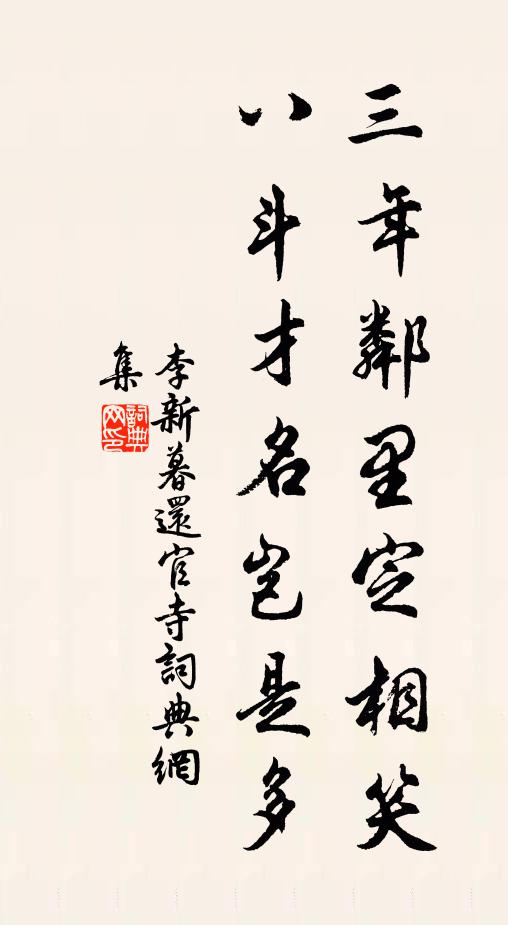 三年鄰里空相笑
八斗才名豈是多
李新暮還官寺詞典網
集
詞典網印